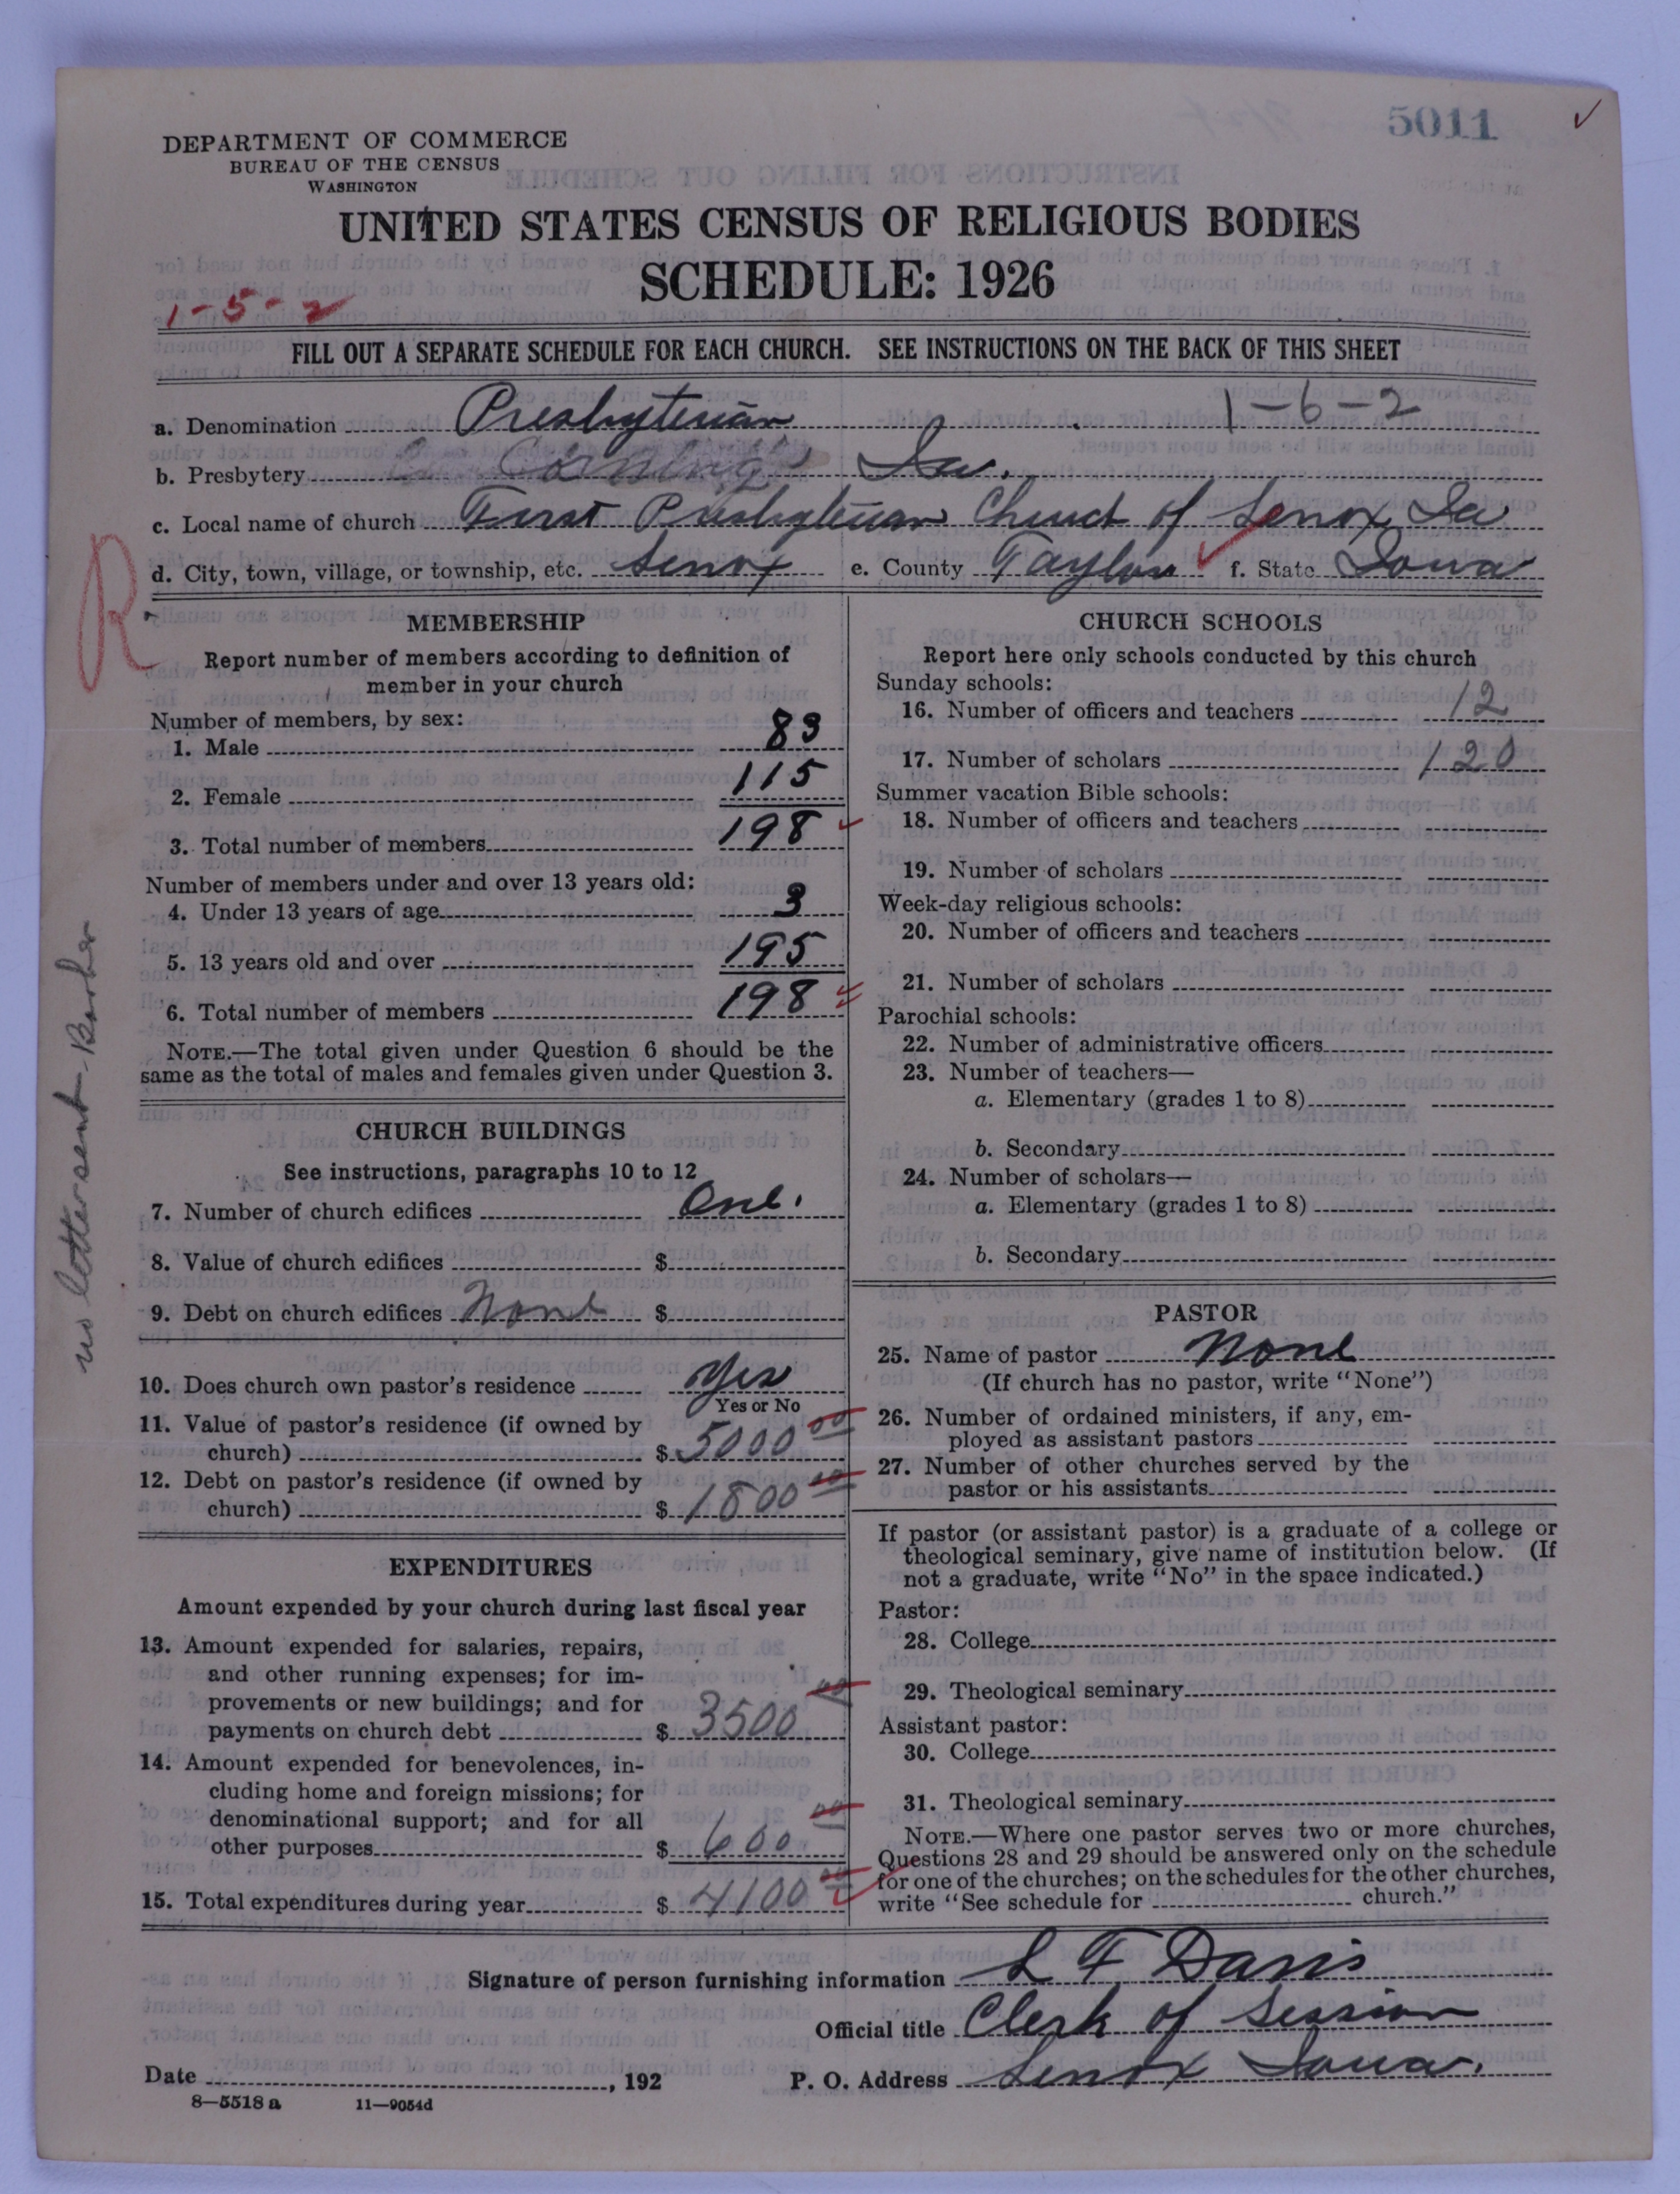 5011 ✓
DEPARTMENT OF COMMERCE
BUREAU OF THE CENSUS
WASHINGTON
UNITED STATES CENSUS OF RELIGIOUS BODIES
SCHEDULE: 1926
1-5-2
FILL OUT A SEPARATE SCHEDULE FOR EACH CHURCH. SEE INSTRUCTIONS ON THE BACK OF THIS SHEET
1-6-2
a. Denomination Presbyterian
b. Presbytery Corning Ia.
c. Local name of church First Presbyterian Church of Lenox, Ia
d. City, town, village, or township, etc. Lenox e. County Taylor f. State Iowa
R
no letter sent
MEMBERSHIP
Report number of members according to definition of
member in your church
Number of members, by sex:
1. Male 83
2. Female 115
3. Total number of members 198
Number of members under and over 13 years old:
4. Under 13 years of age 3
5. 13 years old and over 195
6. Total number of members 198
NOTE.—The total given under Question 6 should be the
same as the total of males and females given under Question 3.
CHURCH BUILDINGS
See instructions, paragraphs 10 to 12
7. Number of church edifices One.
8. Value of church edifices $
9. Debt on church edifices None $
10. Does church own pastor's residence Yes
Yes or No
11. Value of pastor's residence (if owned by
church) $ 5000 00
12. Debt on pastor's residence (if owned by
church) $ 1800 00
EXPENDITURES
Amount expended by your church during last fiscal year
13. Amount expended for salaries, repairs,
and other running expenses; for im-
provements or new buildings; and for
payments on church debt $ 3500 00
14. Amount expended for benevolences, in-
cluding home and foreign missions; for
denominational support; and for all
other purposes $ 600 00
15. Total expenditures during year $ 4100 00
CHURCH SCHOOLS
Report here only schools conducted by this church
Sunday schools:
16. Number of officers and teachers 12
17. Number of scholars 120
Summer vacation Bible schools:
18. Number of officers and teachers
19. Number of scholars
Week-day religious schools:
20. Number of officers and teachers
21. Number of scholars
Parochial schools:
22. Number of administrative officers
23. Number of teachers—
a. Elementary (grades 1 to 8)
b. Secondary
24. Number of scholars—
a. Elementary (grades 1 to 8)
b. Secondary
PASTOR
25. Name of pastor None
(If church has no pastor, write "None")
26. Number of ordained ministers, if any, em-
ployed as assistant pastors
27. Number of other churches served by the
pastor or his assistants
If pastor (or assistant pastor) is a graduate of a college or
theological seminary, give name of institution below. (If
not a graduate, write "No" in the space indicated.)
Pastor:
28. College
29. Theological seminary
Assistant pastor:
30. College
31. Theological seminary
NOTE.—Where one pastor serves two or more churches,
Questions 28 and 29 should be answered only on the schedule
for one of the churches; on the schedules for the other churches,
write "See schedule for church."
Signature of person furnishing information L F Davis
Official title Clerk of Session
Date , 192 P. O. Address Lenox Iowa.
8—5518 a 11—9054d